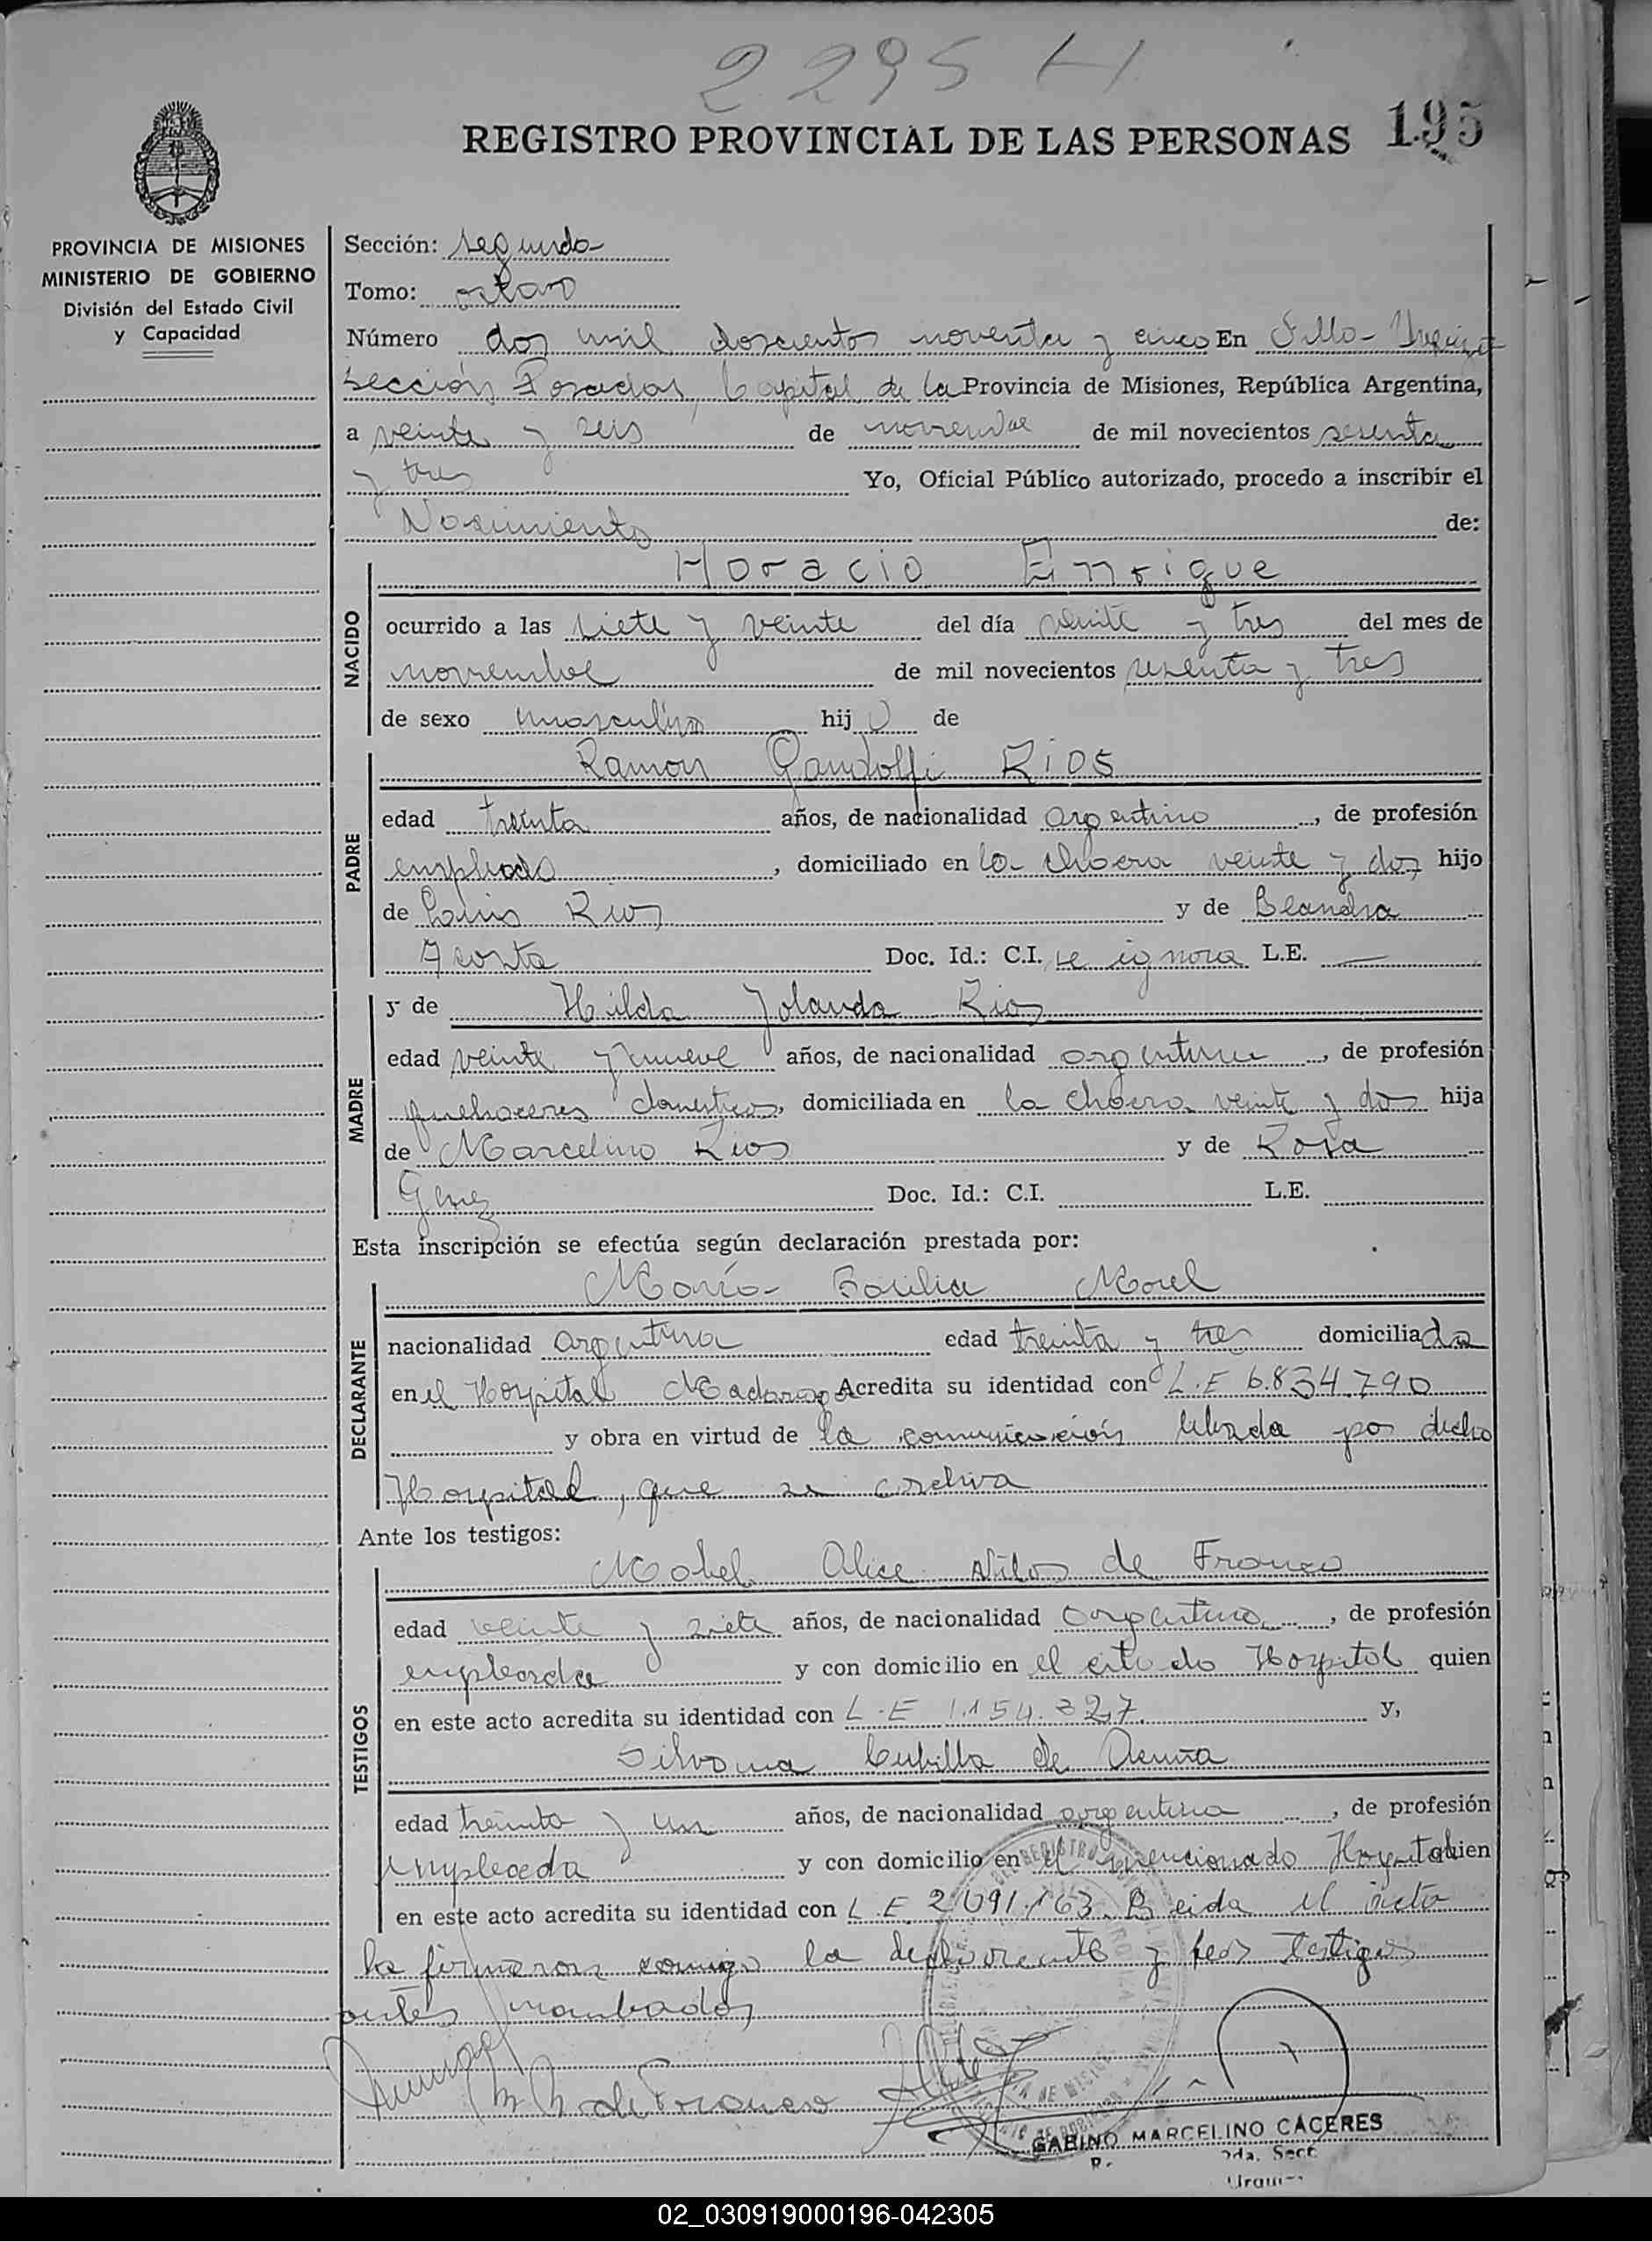 2295 H
REGISTRO PROVINCIAL DE LAS PERSONAS 195
PROVINCIA DE MISIONES
MINISTERIO DE GOBIERNO
División del Estado Civil
y Capacidad
Sección: segunda
Tomo: octavo
Número dos mil doscientos noventa y cinco En Villa Urquiza
sección Posadas, Capital de la Provincia de Misiones, República Argentina,
a veinte y seis de noviembre de mil novecientos sesenta
y tres Yo, Oficial Público autorizado, procedo a inscribir el
Nacimiento de:
NACIDO
Horacio Enrique
ocurrido a las siete y veinte del día veinte y tres del mes de
noviembre de mil novecientos sesenta y tres
de sexo masculino hijo de
PADRE
Ramon Gandolfi Rios
edad treinta años, de nacionalidad argentino, de profesión
empleado, domiciliado en la chacra veinte y dos hijo
de Rios y de
Acosta Doc. Id.: C.I. se ignora L.E. —
MADRE
y de Hilda Yolanda Rios
edad veinte y nueve años, de nacionalidad argentina, de profesión
quehaceres domesticos, domiciliada en la chacra veinte y dos hija
de Marcelino Rios y de Rosa
Doc. Id.: C.I. L.E.
Esta inscripción se efectúa según declaración prestada por:
DECLARANTE
María Morel
nacionalidad argentina edad treinta y tres domiciliada
en el Hospital Madariaga Acredita su identidad con L.E 6.834.790
y obra en virtud de la comunicación librada por dicho
Hospital, que se archiva
Ante los testigos:
TESTIGOS
Mabel Alice de Franco
edad veinte y siete años, de nacionalidad argentina, de profesión
empleada y con domicilio en el citado Hospital quien
en este acto acredita su identidad con L.E 1.154.327 y,
Silvana Cubilla de Acuña
edad treinta y un años, de nacionalidad argentina, de profesión
empleada y con domicilio en el mencionado Hospital quien
en este acto acredita su identidad con L.E 2.091.163. Leida el acta
la firmaron conmigo la declarante y los testigos
antes nombrados
de Franco
GABINO MARCELINO CACERES
2da. Secc.
02_030919000196-042305